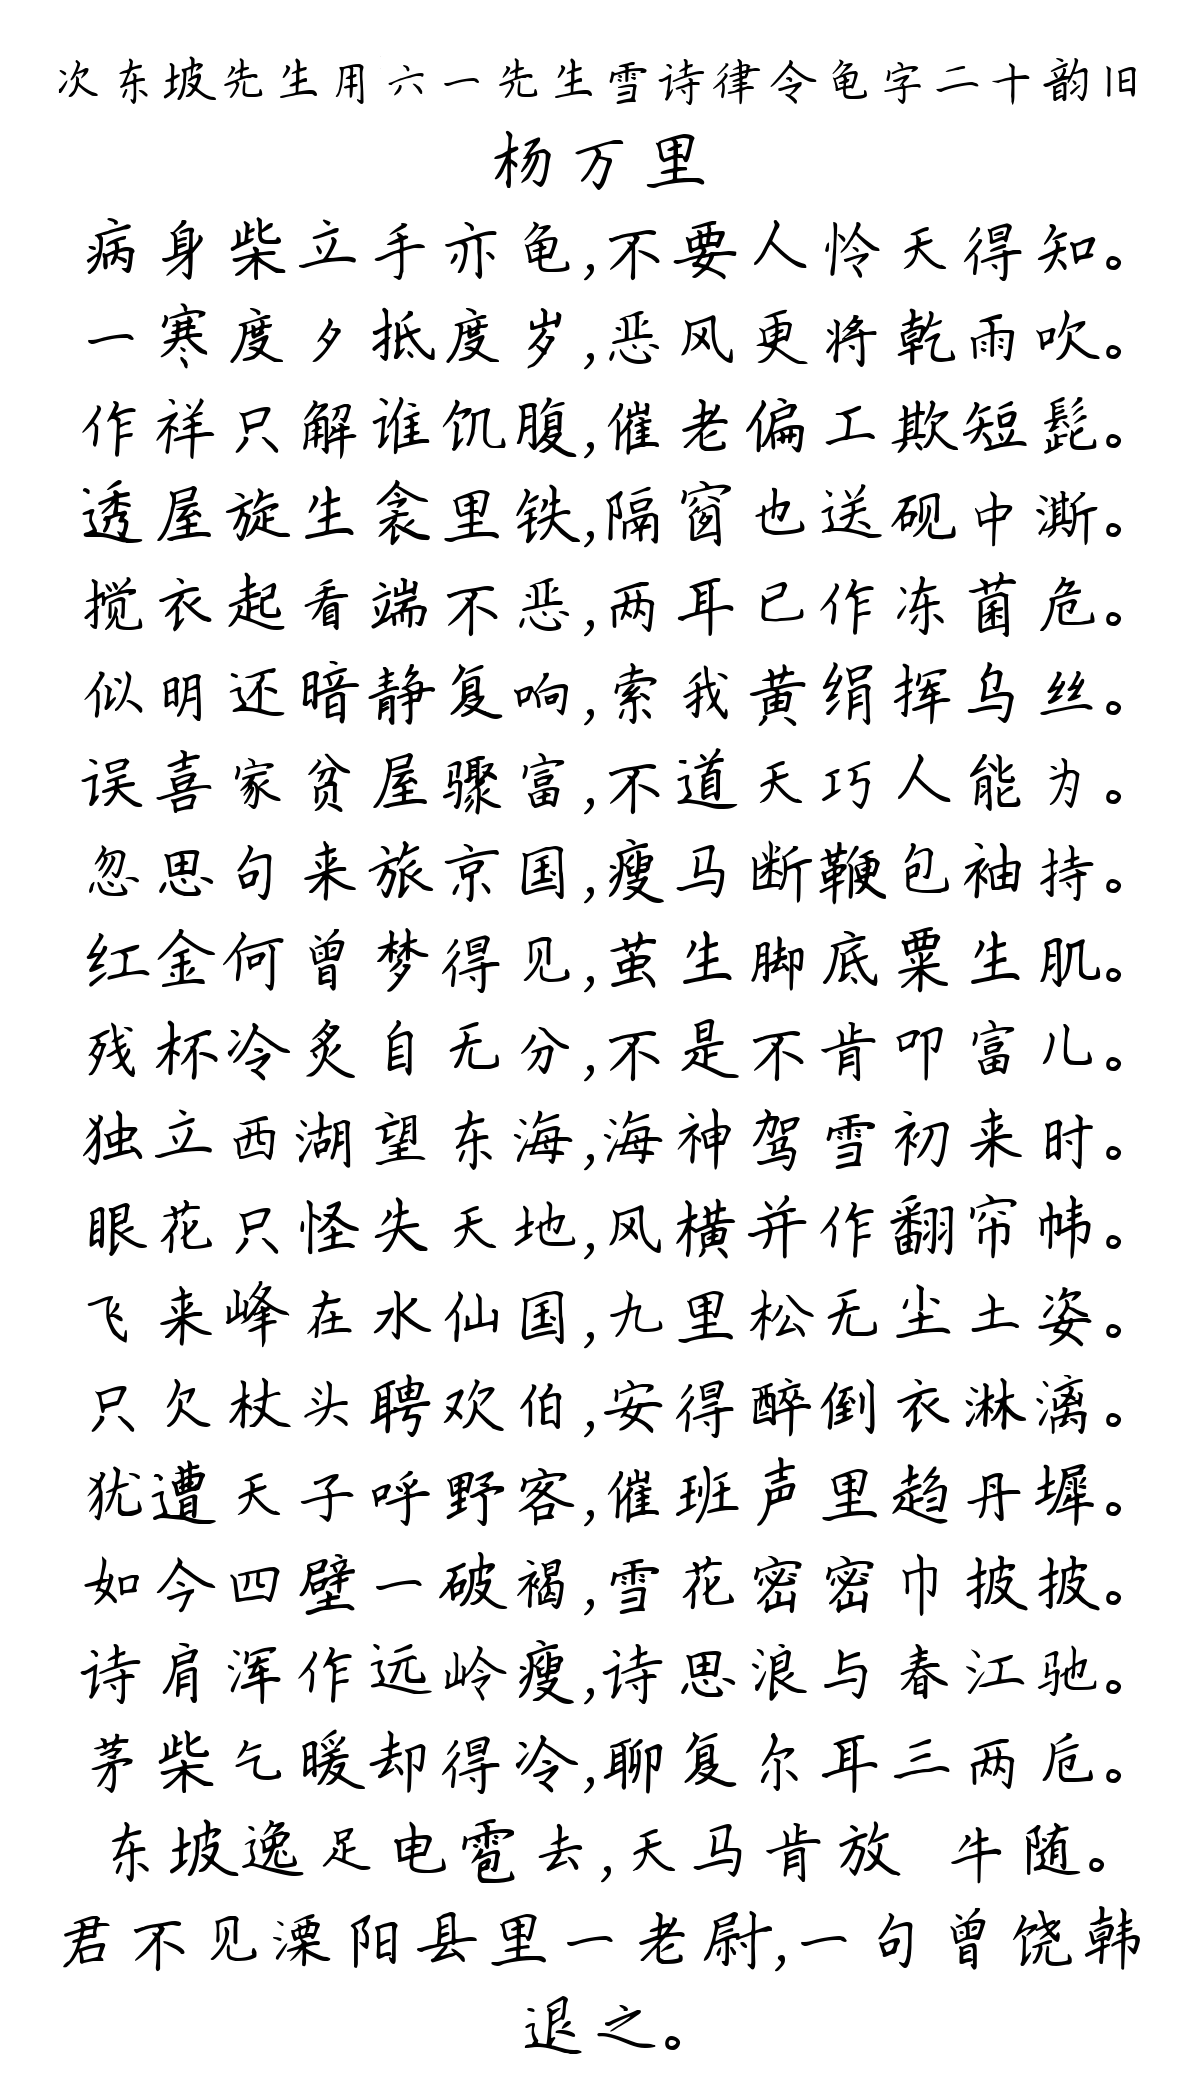 次东坡先生用六一先生雪诗律令龟字二十韵旧
杨万里
病身柴立手亦龟,不要人怜天得知。
一寒度夕抵度岁,恶风更将乾雨吹。
作祥只解谁饥腹,催老偏工欺短髭。
透屋旋生衾里铁,隔窗也送砚中澌。
搅衣起看端不恶,两耳已作冻菌危。
似明还暗静复响,索我黄绢挥乌丝。
误喜家贫屋骤富,不道天巧人能为。
忽思句来旅京国,瘦马断鞭包袖持。
红金何曾梦得见,茧生脚底粟生肌。
残杯冷炙自无分,不是不肯叩富儿。
独立西湖望东海,海神驾雪初来时。
眼花只怪失天地,风横并作翻帘帏。
飞来峰在水仙国,九里松无尘土姿。
只欠杖头聘欢伯,安得醉倒衣淋漓。
犹遭天子呼野客,催班声里趋丹墀。
如今四壁一破褐,雪花密密巾披披。
诗肩浑作远岭瘦,诗思浪与春江驰。
茅柴乞暖却得冷,聊复尔耳三两卮。
东坡逸足电雹去,天马肯放 牛随。
君不见溧阳县里一老尉,一句曾饶韩
退之。